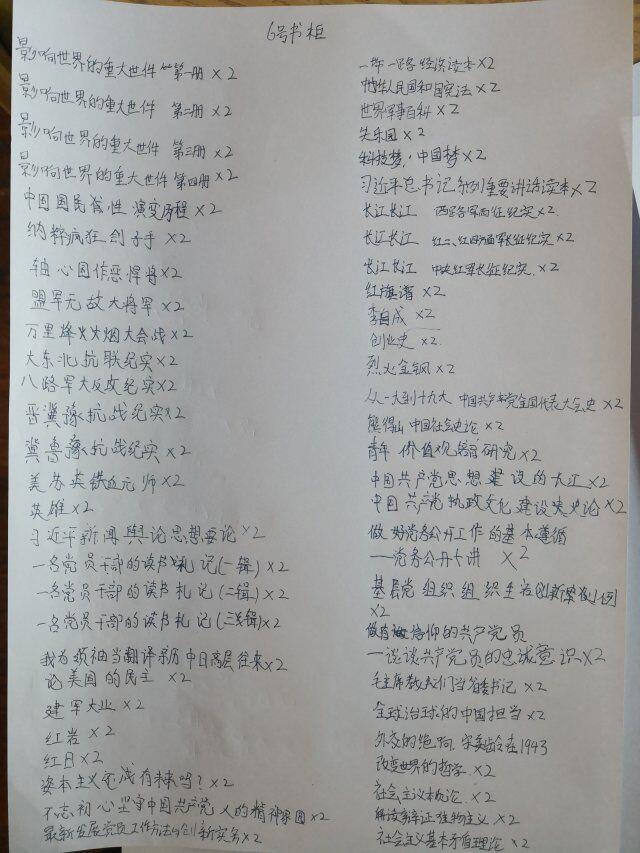 6号书柜
影响世界的重大世件 第一册 ×2
影响世界的重大世件 第二册 ×2
影响世界的重大世件 第三册 ×2
影响世界的重大世件 第四册 ×2
中国国民性 演变历程 ×2
纳粹疯狂刽子手 ×2
轴心国作恶悍将×2
盟军无敌大将军 ×2
万里烽火火烟大会战×2
大东北抗联纪实×2
八路军大反攻纪实×2
晋冀豫抗战纪实×2
冀鲁豫抗战纪实 ×2
美苏英铁血元师×2
英雄×2
习近平新闻舆论思想要论 ×2
一名党员干部的读书札记(一辑) ×2
一名党员干部的读书札记(二辑) ×2
一名党员干部的读书札记(三辑)×2
我为领袖当翻译亲历中日高层往来×2
论美国的民主 ×2
建军大业 ×2
红岩 ×2
红日×2
资本主义还有未来吗? ×2
不忘初心坚守中国共产党人的精神家园×2
最新发展党员工作方法与创新实务×2
一带一路 经济读本×2
中华人民国和国宪法 ×2
世界军事百科 ×2
失乐园 ×2
科技梦,中国梦×2
习近平总书记系列重要讲话读本×2
长江长江 西路军西征纪实×2
长江长江 红二、红四方面军长征纪实 ×2
长江长江 中央红军长征纪实 ×2
红旗谱 ×2
李自成 ×2
创业史 ×2
烈火金钢 ×2
从一大到十九大 中国共产党全国代表大会史 ×2
熊得山 中国社会史论 ×2
青年 价值观培育研究×2
中国共产党思想建设的大江×2
中国共产党执政文化建设史论×2
做好党务公开工作的基本遵循
——党务公开十讲 ×2
基层党组织组织生活创新案例
×2
做有信仰的共产党员
—谈谈共产党员的忠诚意识×2
毛主席教我们当省委书记 ×2
全球治理的中国担当 ×2
外交的绝响.宋美龄在1943
改变世界的哲学 ×2
社会主义本质论 ×2
解读辩证唯物主义 ×2
社会主义基本矛盾理论 ×2